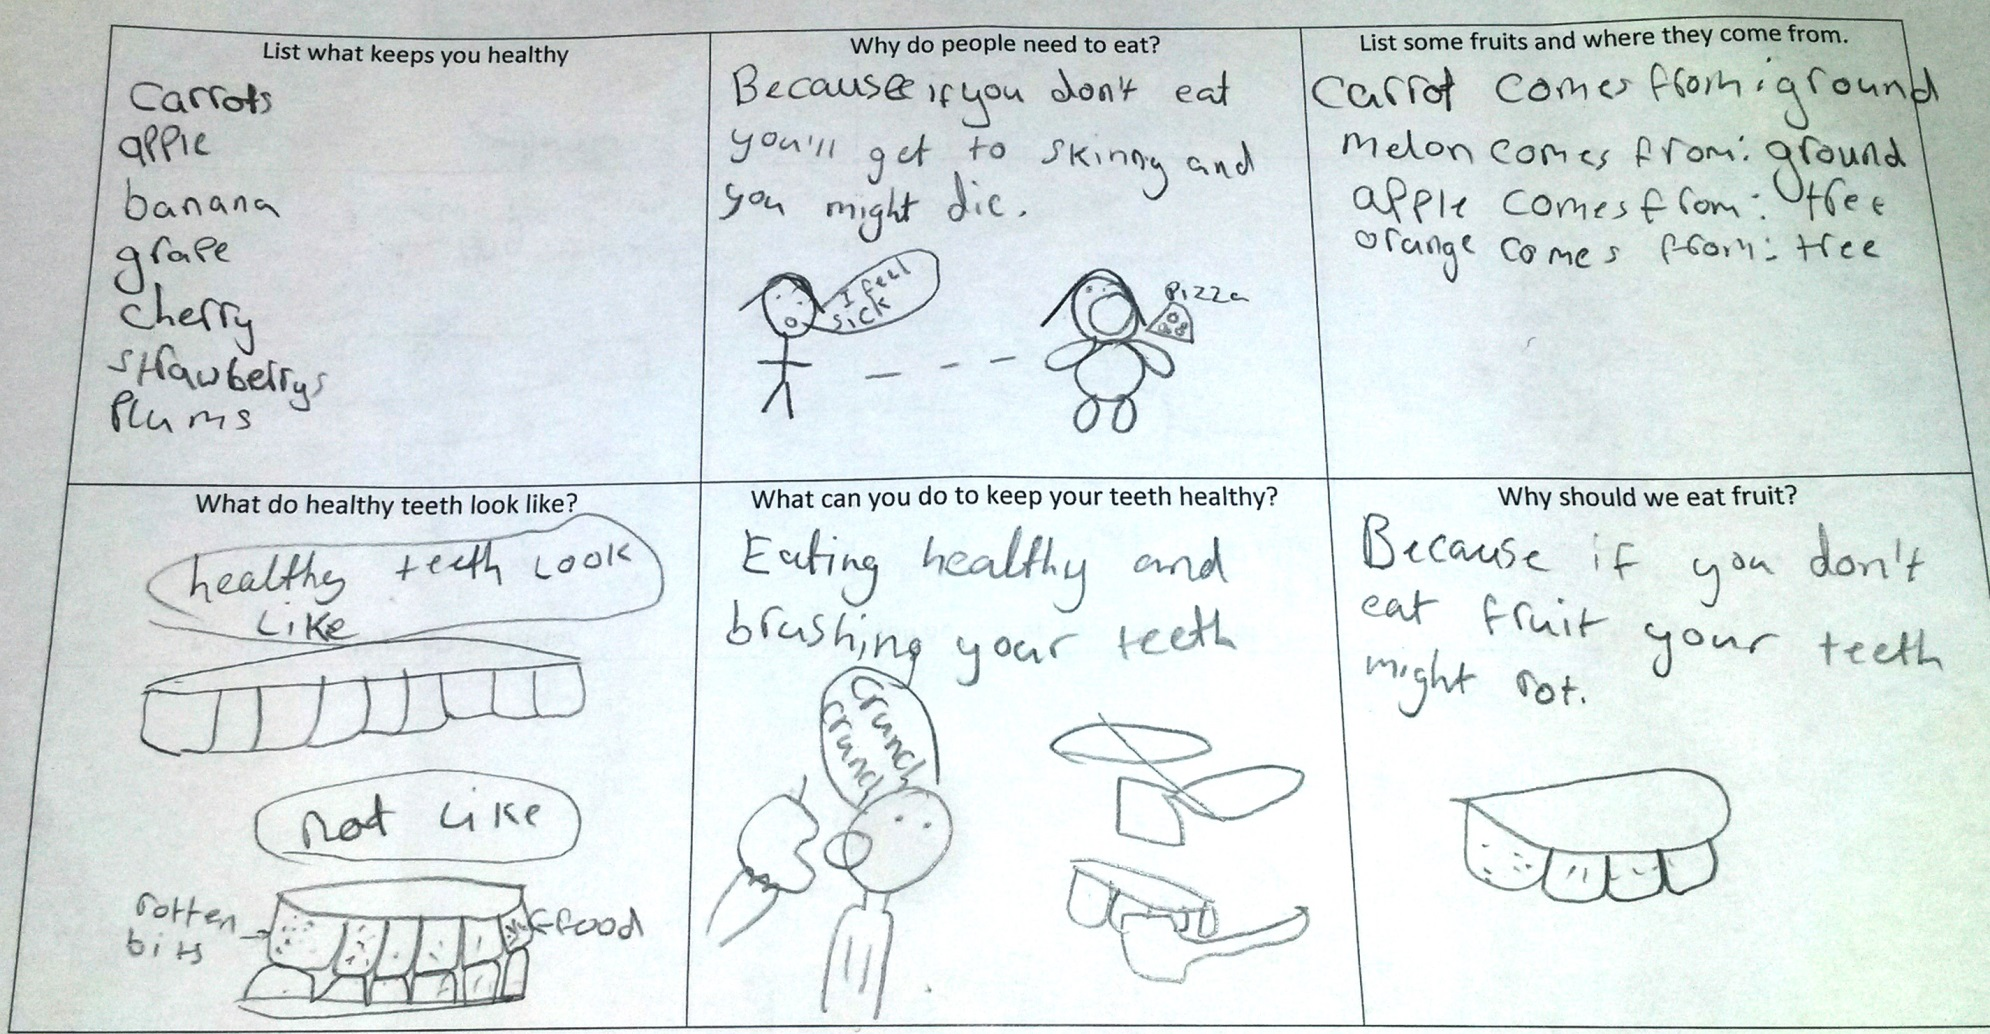 List what keeps you healthy
Carrots
apple
banana
grape
cherry
strawberrys
Plums
Why do people need to eat?
Because if you don't eat
you'll get to skinny and
you might die.
I feel
sick
Pizza
List some fruits and where they come from.
Carrot comes from: ground
melon comes from: ground
apple comes from: tree
orange comes from: tree
What do healthy teeth look like?
healthy teeth Look
Like
not Like
rotten
bits
food
What can you do to keep your teeth healthy?
Eating healthy and
brushing your teeth
crunch
crunch
Why should we eat fruit?
Because if you don't
eat fruit your teeth
might rot.